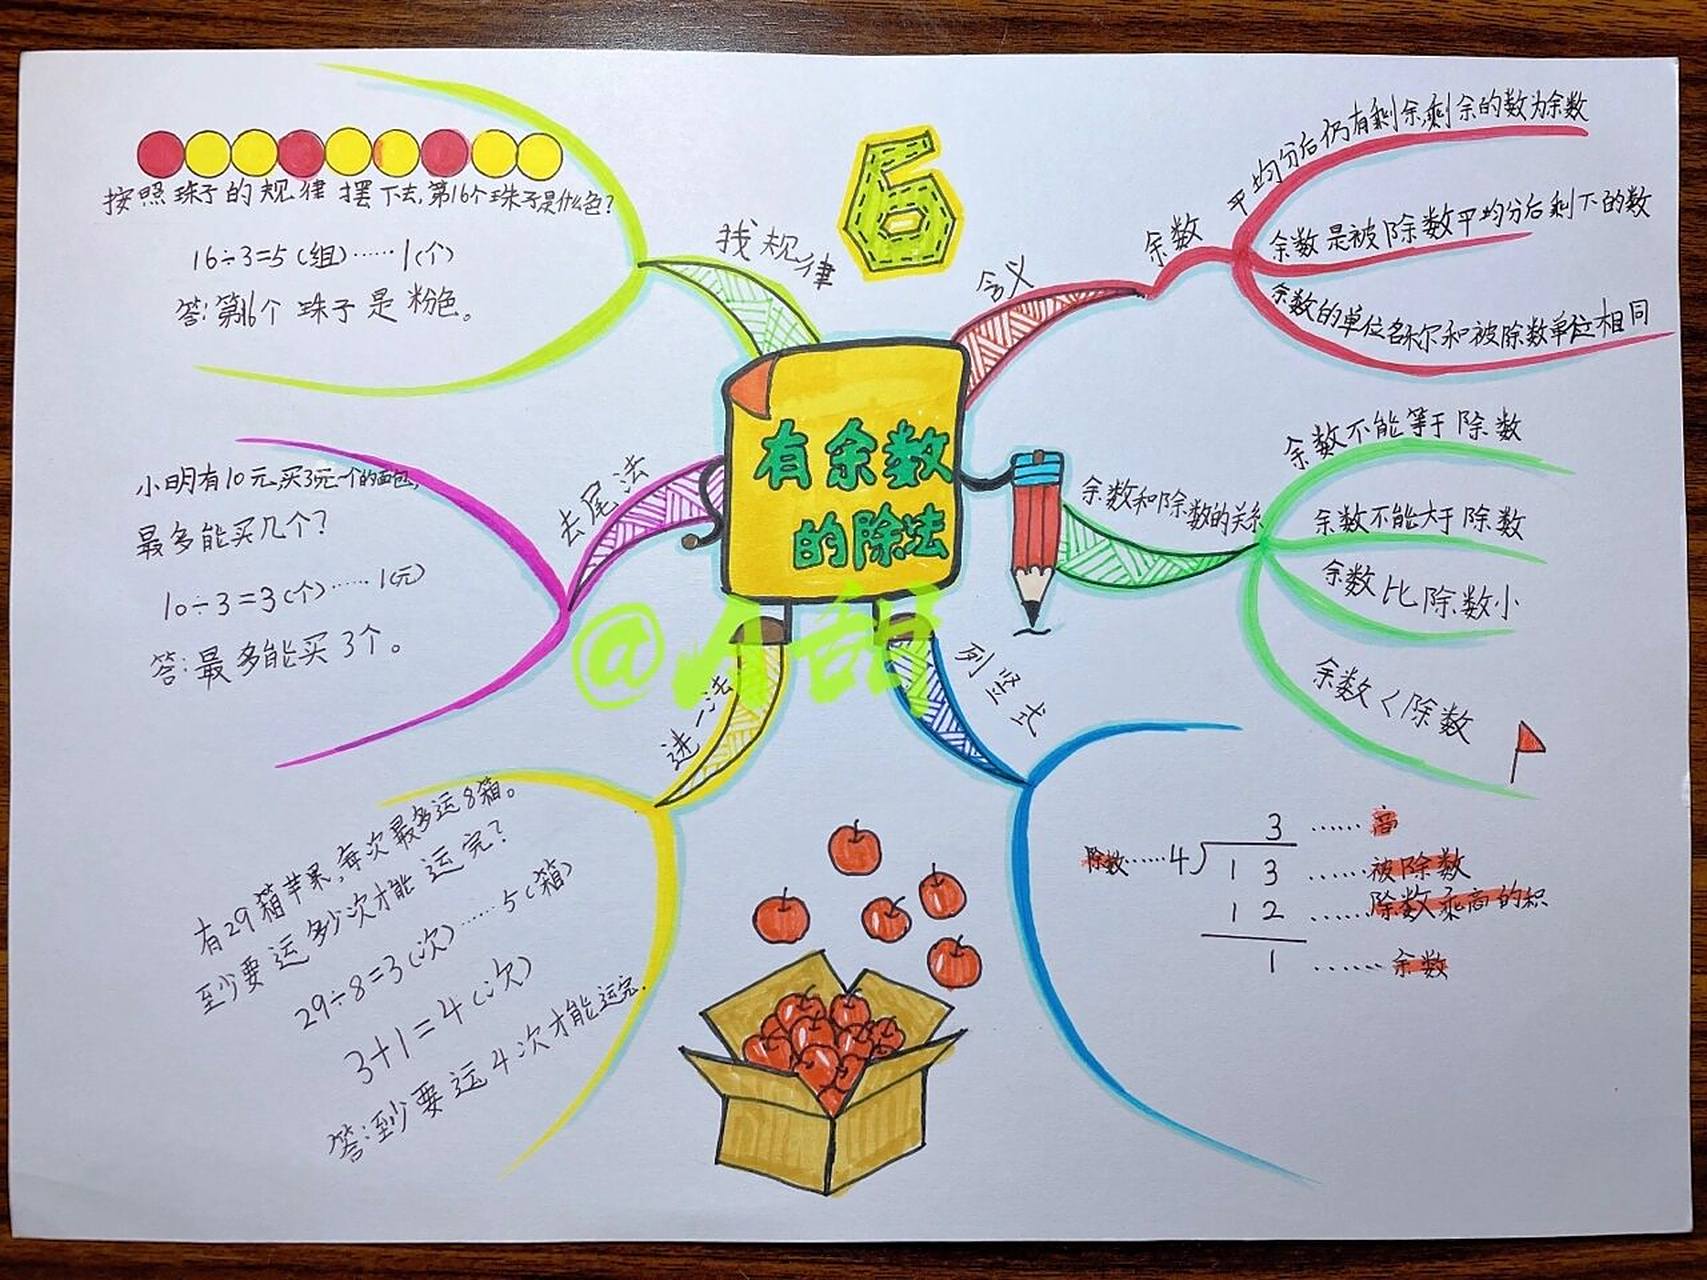 6
有余数
的除法
含义
余数
平均分后仍有剩余,剩余的数为余数
余数是被除数平均分后剩下的数
余数的单位名称尔和被除数单位相同
余数和除数的关系
余数不能等于除数
余数不能大于除数
余数比除数小
余数<除数
列竖式
3……商
除数……4
13……被除数
12……除数乘商的积
1……余数
进一法
有29箱苹果,每次最多运8箱。
至少要运多少次才能运完?
29÷8=3(次)……5(箱)
3+1=4(次)
答:至少要运4次才能运完.
去尾法
小明有10元,买3元一个的面包,
最多能买几个?
10÷3=3(个)……1(元)
答:最多能买3个。
找规律
按照珠子的规律摆下去,第16个珠子是什么色?
16÷3=5(组)……1(个)
答:第16个珠子是粉色。